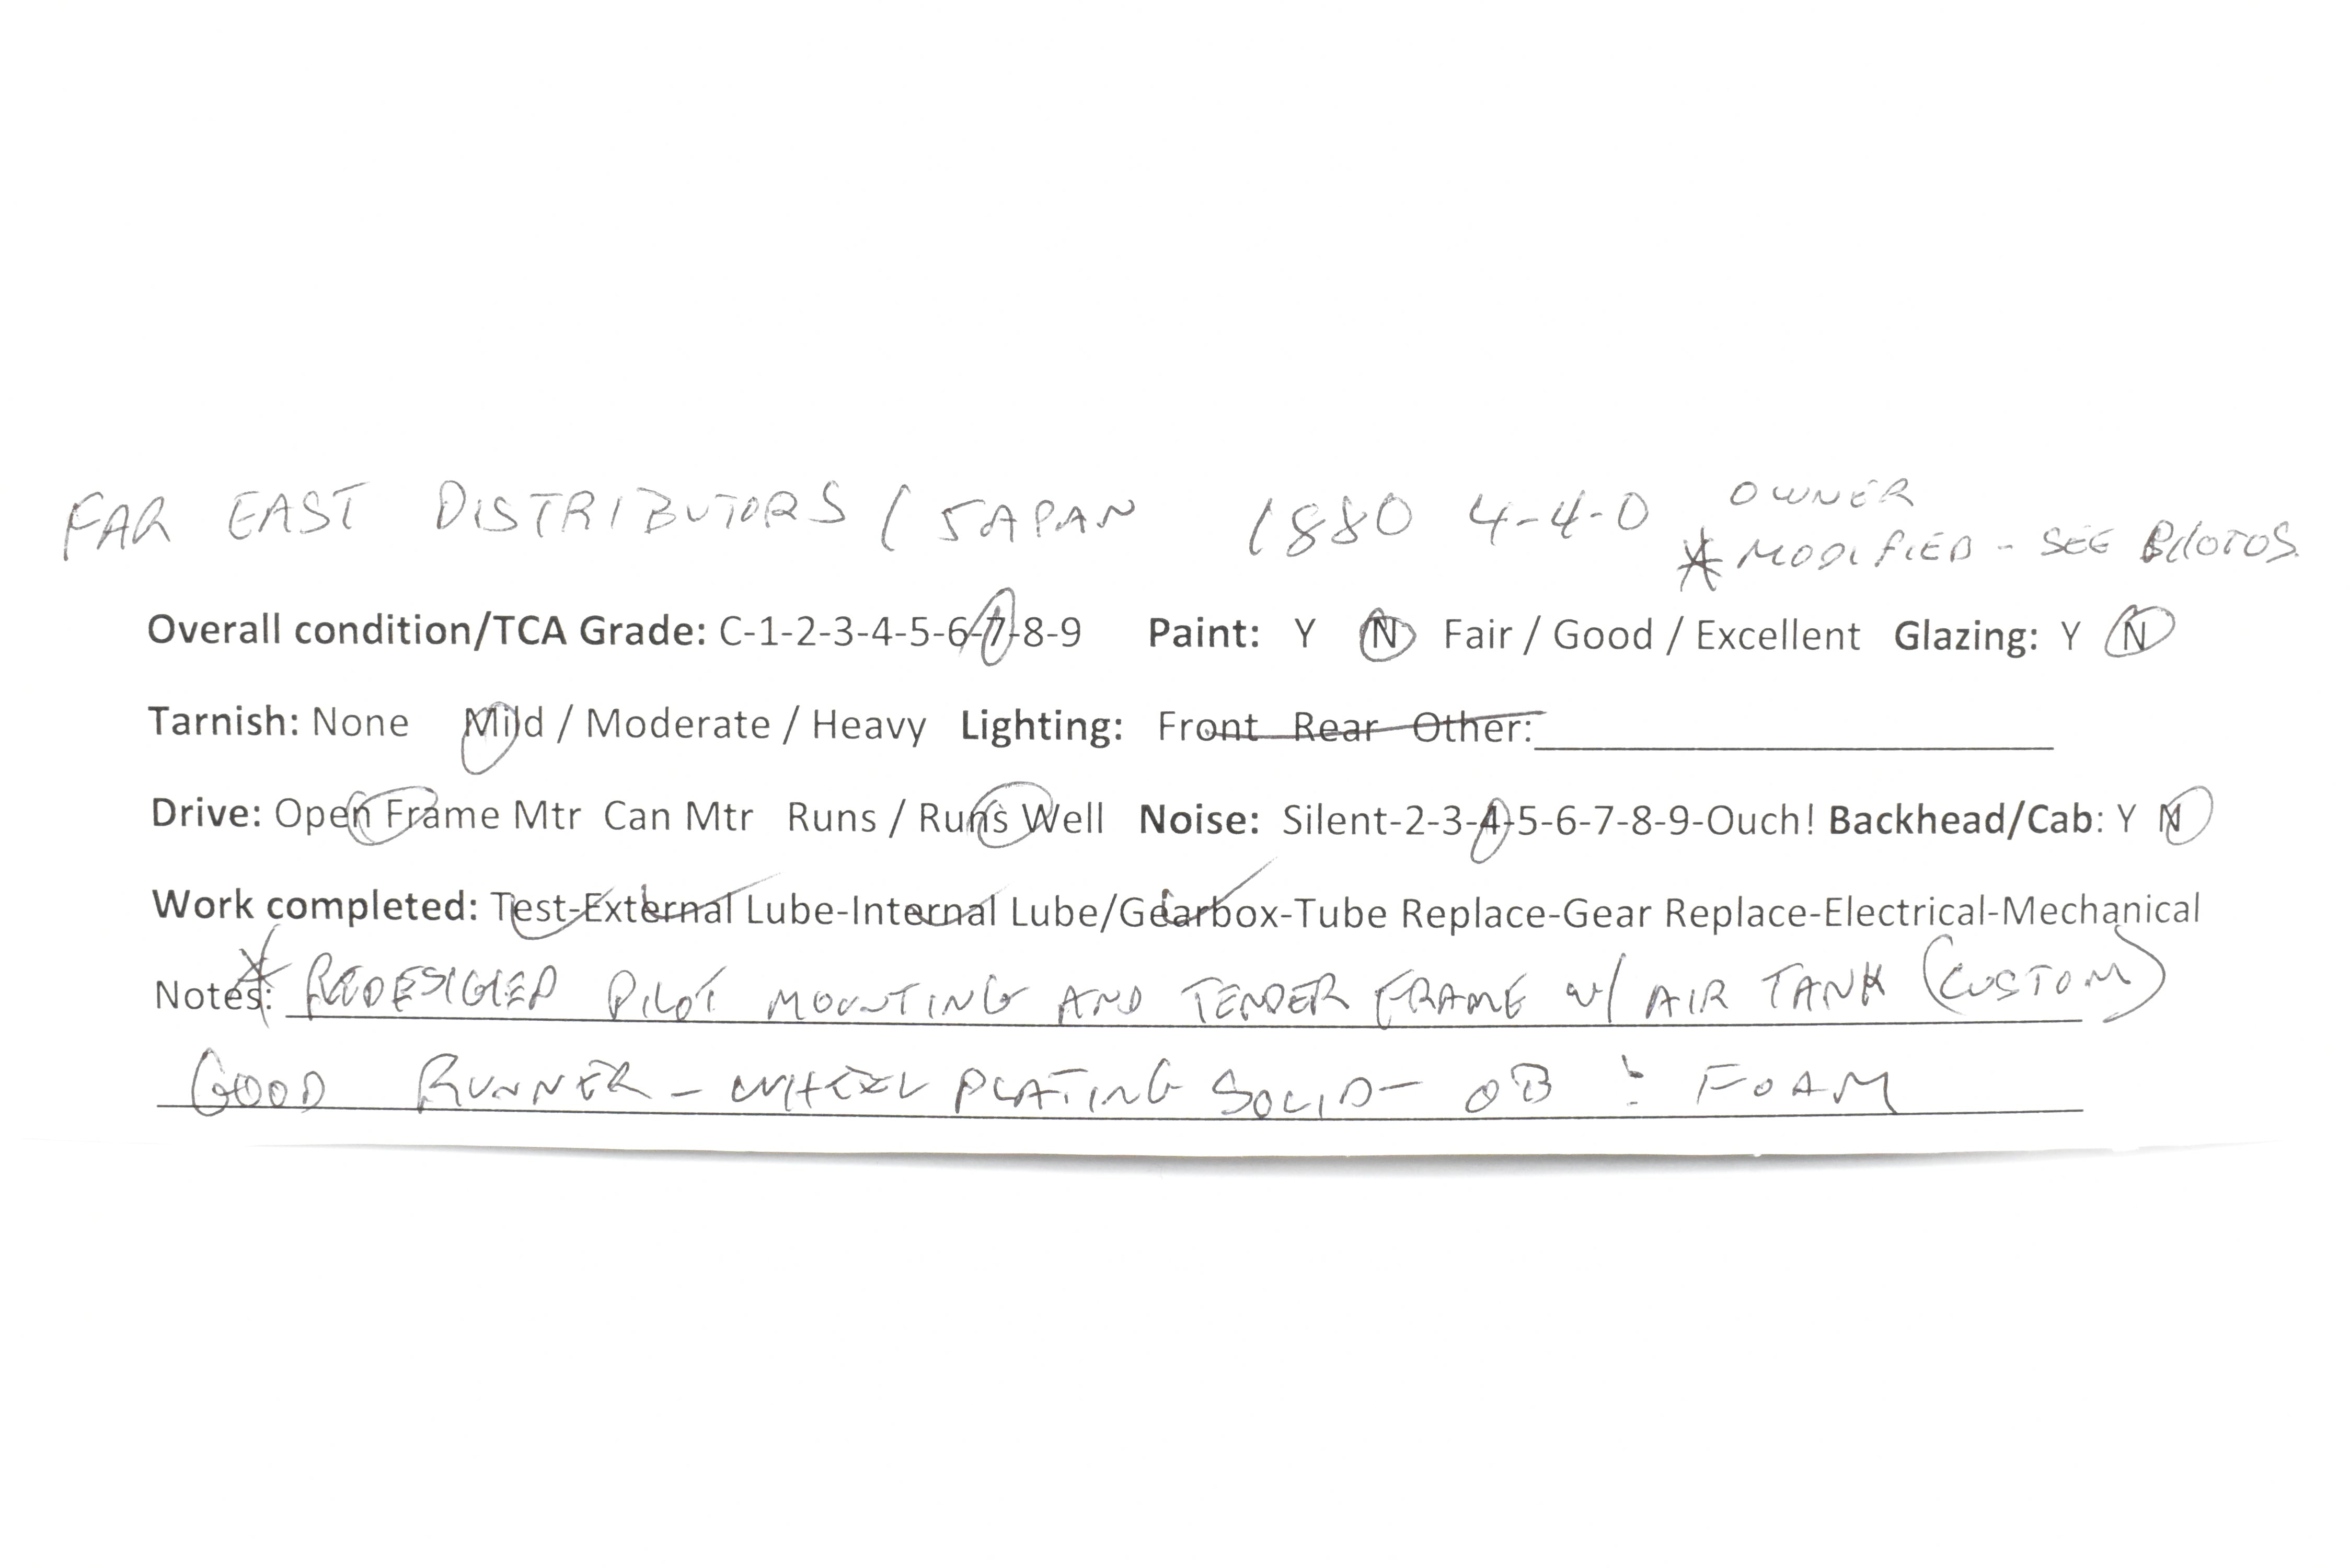 FAR EAST DISTRIBUTORS / JAPAN 1880 4-4-0 OWNER
* MODIFIED - SEE PHOTOS
Overall condition/TCA Grade: C-1-2-3-4-5-6-7-8-9 Paint: Y N Fair / Good / Excellent Glazing: Y N
Tarnish: None Mild / Moderate / Heavy Lighting: Front Rear Other:
Drive: Open Frame Mtr Can Mtr Runs / Runs Well Noise: Silent-2-3-4-5-6-7-8-9-Ouch! Backhead/Cab: Y N
Work completed: Test-External Lube-Internal Lube/Gearbox-Tube Replace-Gear Replace-Electrical-Mechanical
Notes: * REDESIGNED PILOT MOUNTING AND TENDER FRAME w/ AIR TANK (CUSTOM)
GOOD RUNNER - WHEEL PLATING SOLID - OB & FOAM